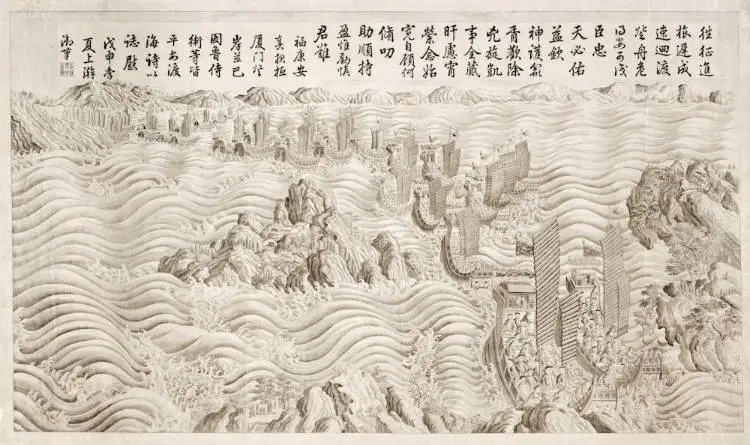 往征進
旅遲成
速迴渡
登舟危
得安可識
臣忠
天必佑
益欽
神護僉
胥歡除
兇旋凱
事全蕆
旰慮宵
縈念始
寬自顧何
脩叨
助順持
盈惟勵慎
君難
福康安
奏報抵
厦门登
岸並巴
圖魯侍
衛等皆
平安渡
海詩以
誌慰
戊申季
夏上澣
御筆